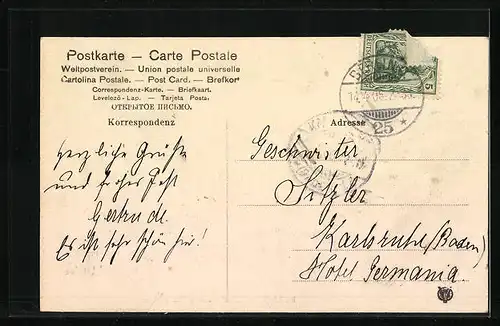 Postkarte — Carte Postale
Weltpostverein. — Union postale universelle
Cartolina Postale. — Post Card. — Brefkort
Correspondenz-Karte. — Briefkaart.
Levelező-Lap. — Tarjeta Posta.
ОТКРЫТОЕ ПИСЬМО.
Korrespondenz
Adresse
5
25
Herzliche Grüße
und frohes Fest
Gertrude.
Es ist sehr schön hier!
Geschwister
Sitzler
Karlsruhe (Baden)
Hotel Germania.